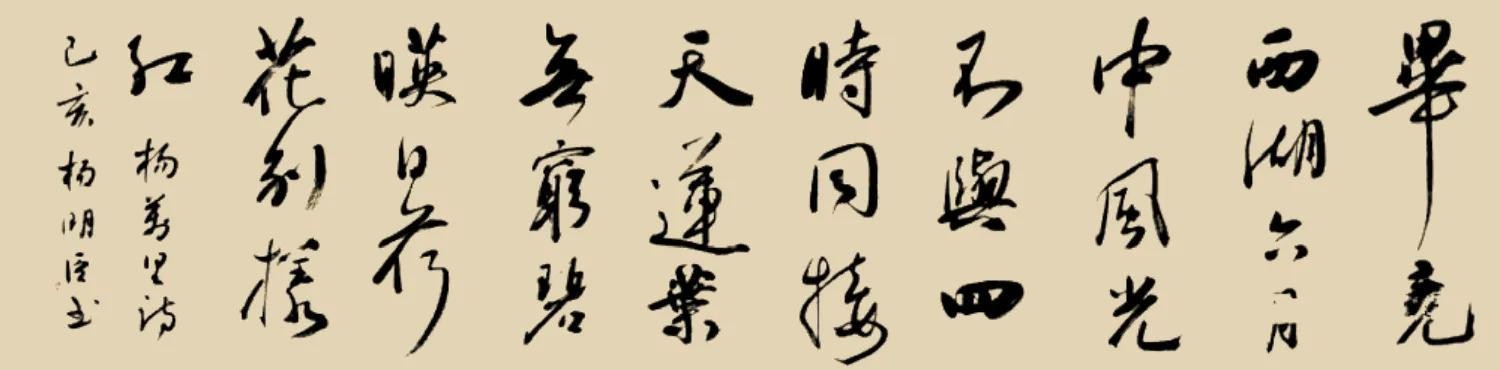 畢竟
西湖六月
中風光
不與四
時同接
天蓮葉
無窮碧
暎日荷
花別樣
紅 杨萬里诗
己亥 杨明臣书